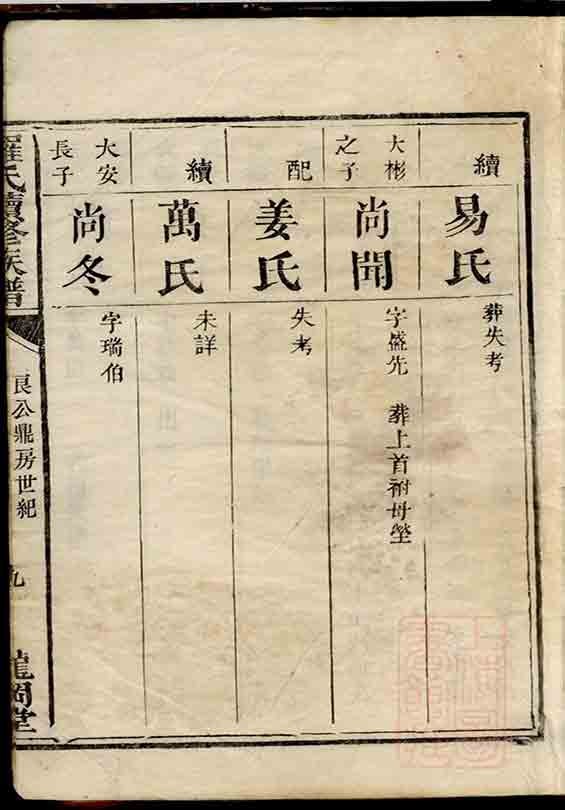 續
易氏
葬失考
大彬
之子
尚開
字盛先 葬上首祔母塋
配
姜氏
失考
續
萬氏
未詳
大安
長子
尚冬
字瑞伯
羅氏續修族譜
良公鼎房世紀
九
龍岡堂